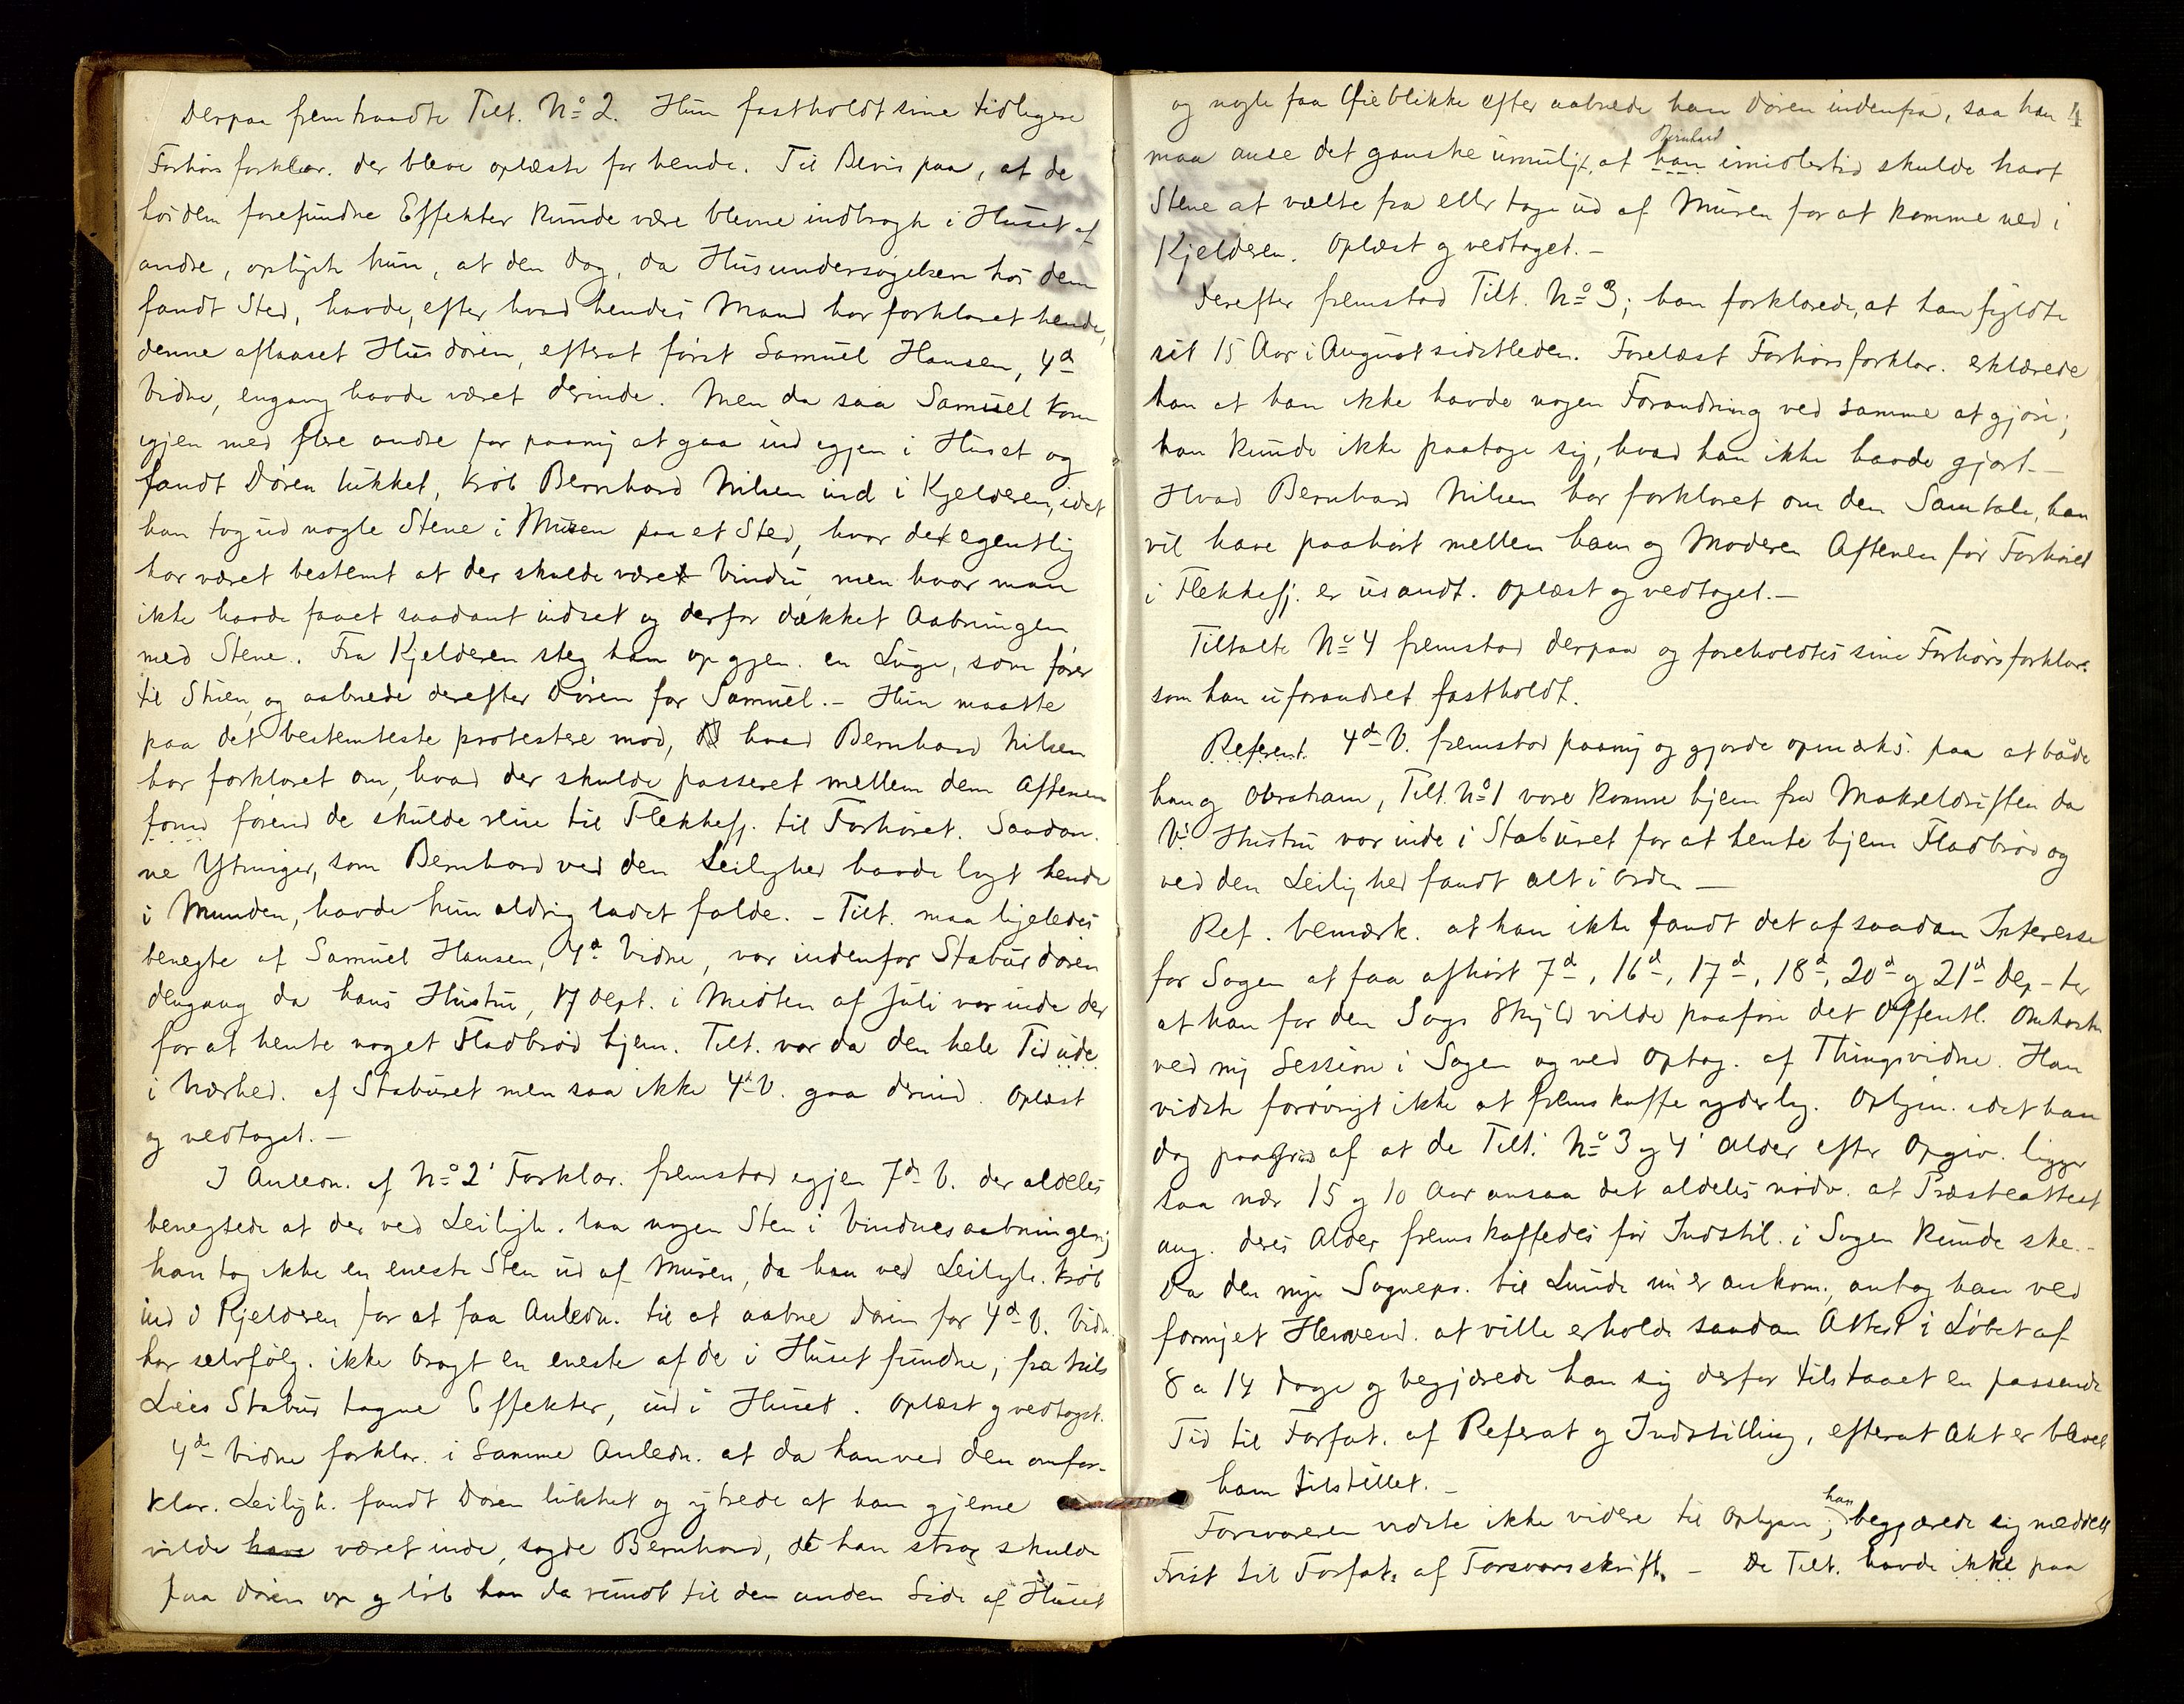 Derpaa fremtraadte Tilt. No 2. Hun fastholdt sine tidligere
Forhørsforklar. der bleve oplæste for hende. Til Bevis paa, at de
hos dem forefundne Effekter kunde være blevne indbragte i Huset af
andre, oplyste hun, at den Dag, da Husundersøgelsen hos dem
fandt Sted, havde, efter hvad hendes Mand har forklaret hende,
denne aflaaset Husdøren, efterat først Samuel Hansen, 4d
Vidne, engang havde været derinde. Men da saa Samuel kom
igjen med flere andre for paany at gaa ind igjen i Huset og
fandt Døren lukket, krøb Bernhard Nilsen ind i Kjelderen, idet
han tog ud nogle Stene i Muren paa et Sted, hvor det egentlig
har været bestemt at der skulde været Vindu, men hvor man
ikke havde faaet saadant indsat og derfor dækket Aabningen
med Stene. Fra Kjelderen steg han op gjen. en Luge, som fører
til Stuen, og aabnede derefter Døren for Samuel. – Hun maatte
paa det bestemteste protestere mod, hvad Bernhard Nilsen
har forklaret om, hvad der skulde passeret mellem dem Aftenen
forud førend de skulde reise til Flekkefj. til Forhøret. Saadan-
ne Ytringer, som Bernhard ved den Leilighed havde lagt hende
i Munden, havde hun aldrig ladet falde. – Tilt. maa ligeledes
benegte at Samuel Hansen, 4d Vidne, var indenfor Stabursdøren
dengang da hans Hustru, 17 Dept. i Midten af Juli var inde der
for at hente noget Fladbrød hjem. Tilt. var da den hele Tid ude
i Nærhed. af Staburet men saa ikke 4d V. gaa derind. Oplæst
og vedtaget. –
I Anledn. af No 2' Forklar. fremstod igjen 7d V. der aldeles
benegtede at der ved Leiligh. laa nogen Sten i Vinduesaabningen;
han tog ikke en eneste Sten ud af Muren, da han ved Leiligh. krøb
ind i Kjelderen for at faa Anledn. til at aabne Døren for 4d V. Vidn.
har selvfølg. ikke bragt en eneste af de i Huset fundne, fra Nils
Leies Stabur tagne Effekter, ind i Huset. Oplæst g vedtaget.
4d Vidne forklar. i samme Anledn. at da han ved den omfor-
klar. Leiligh. fandt Døren lukket og ytrede at han gjerne
vilde have været inde, sagde Bernhard, at han strax skulde
faa Døren op g løb han da rundt til den anden Side af Huset
og nogle faa Øieblikke efter aabnede han Døren indenfra, saa han 4
Bernhard
maa anse det ganske umuligt, at han imidlertid skulde havt
Stene at vælte fra eller tage ud af Muren for at komme ned i
Kjelderen. Oplæst g vedtaget. –
Derefter fremstod Tilt. No 3; han forklarede, at han fyldte
sit 15 Aar i August sidstleden. Forelæst Forhørsforklar. erklærede
han at han ikke havde nogen Forandring ved samme at gjøre;
han kunde ikke paatage sig, hvad han ikke havde gjort. –
Hvad Bernhard Nilsen har forklaret om den Samtale, han
vil have paahørt mellem ham og Moderen Aftenen før Forhøret
i Flekkefj. er usandt. Oplæst g vedtaget. –
Tiltalte No 4 fremstod derpaa og foreholdtes sine Forhørsforklar.
som han uforandret fastholdt.
Referent. 4d V. fremstod paany og gjorde opmærks. paa at både
han g Abraham, Tilt. No 1 vare komne hjem fra Makreldriften da
V's Hustru var inde i Staburet for at hente hjem Fladbrød og
ved den Leilighed fandt alt i Orden –
Ref. bemærk. at han ikke fandt det af saadan Interesse
for Sagen at faa afhørt 7d, 16d, 17d, 18d, 20d g 21d Dep-ter
at han for den Sags Skyld vilde paaføre det Offentl. Omkostn
ved ny Session i Sagen og ved Optag. af Thingsvidne. Han
vidste forøvrigt ikke at fremskaffe yderlig. Oplysn. idet han
dog paa Grund af at de Tilt. No 3 g 4' Alder efter Opgiv. ligger
saa nær 15 g 10 Aar ansaa det aldeles nødv. at Præsteattest
ang. deres Alder fremskaffedes før Indstil. i Sagen kunde ske. –
Da den nye Sognepr. til Lunde nu er ankom., antog han ved
fornyet Henvend. at ville erholde saadan Attest i Løbet af
8 a 14 Dage g begjærede han sig derfor tilstaaet en passende
Tid til Forfat. af Referat g Indstilling, efterat Akt er blevet
ham tilstillet. –
han
Forsvareren vidste ikke videre til Oplysn; begjærede sig meddelt
Frist til Forfat. af Forsvarsskrift. – De Tilt. havde ikke paa